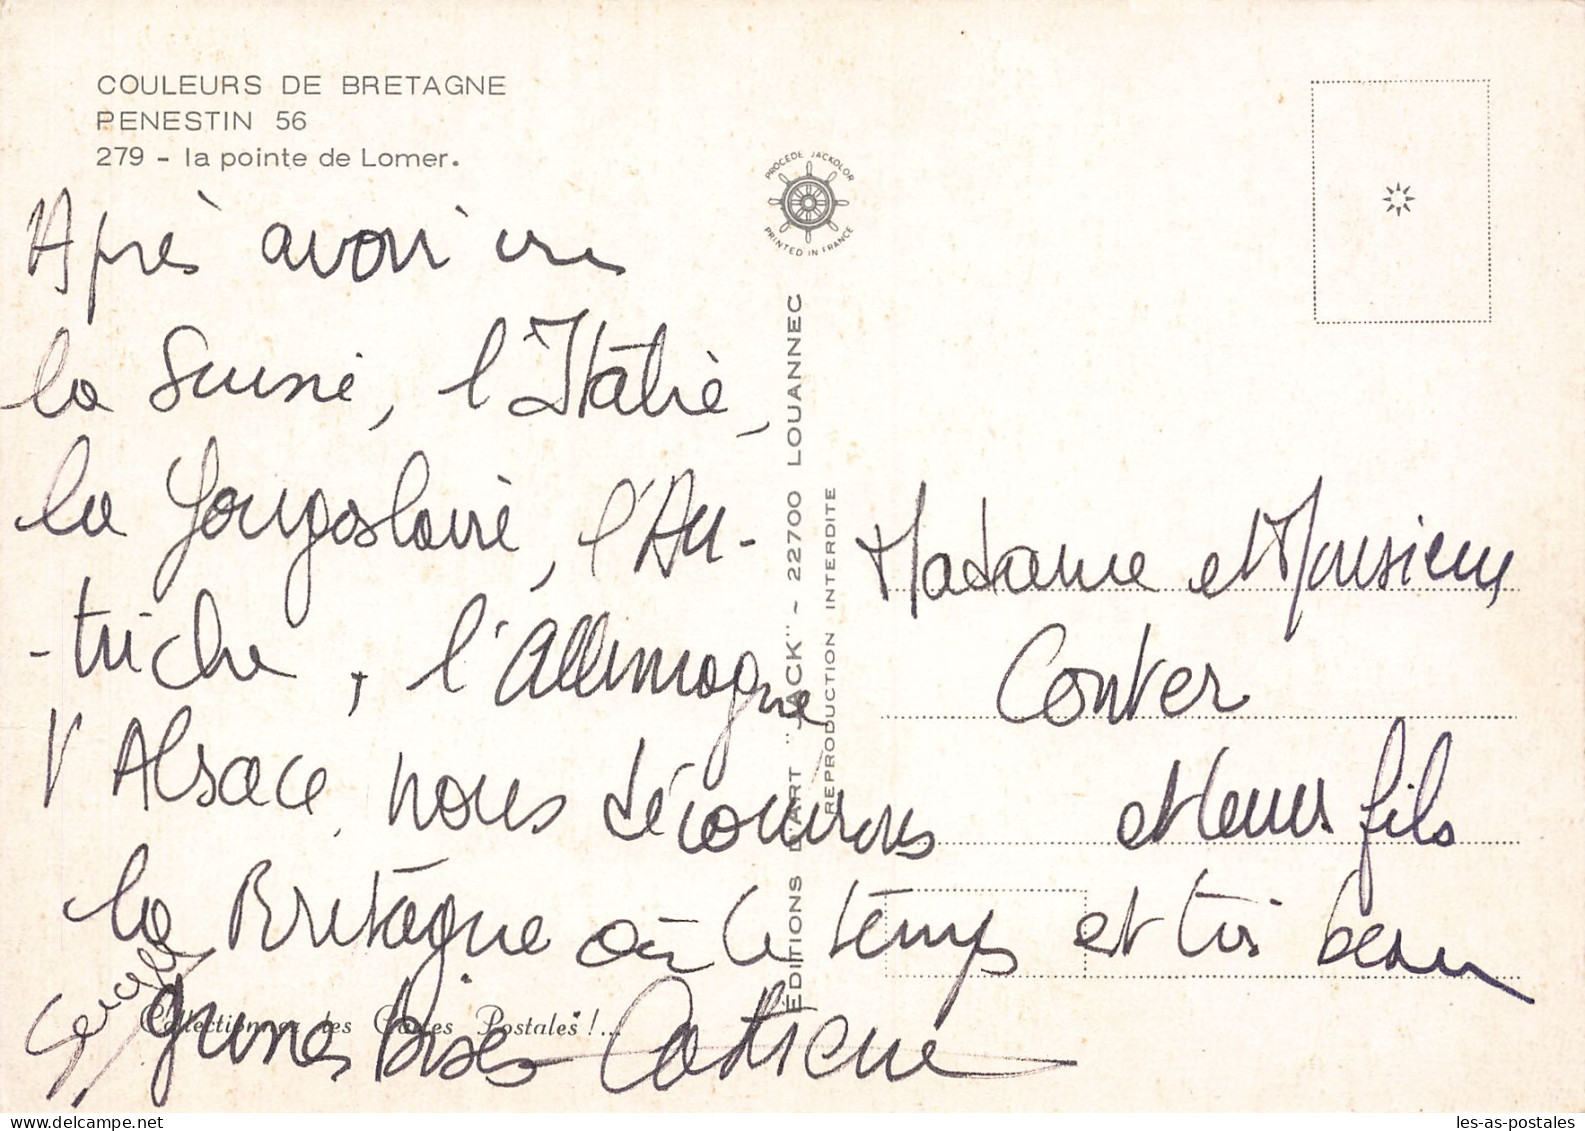 COULEURS DE BRETAGNE
PENESTIN 56
279 - la pointe de Lomer.
PROCEDE JACKOLOR
PRINTED IN FRANCE
EDITIONS D'ART "JACK" - 22700 LOUANNEC
REPRODUCTION INTERDITE
Après avoir vu
la Suisse, l'Italie,
la Yougoslavie, l'Au-
-triche, l'Allemagne
l'Alsace, nous découvrons
la Bretagne où le temps est très beau
grosses bises Catherine
Serge
Collectionnez les Cartes Postales !...
Madame et Monsieur
Conter
et leurs fils
les-as-postales